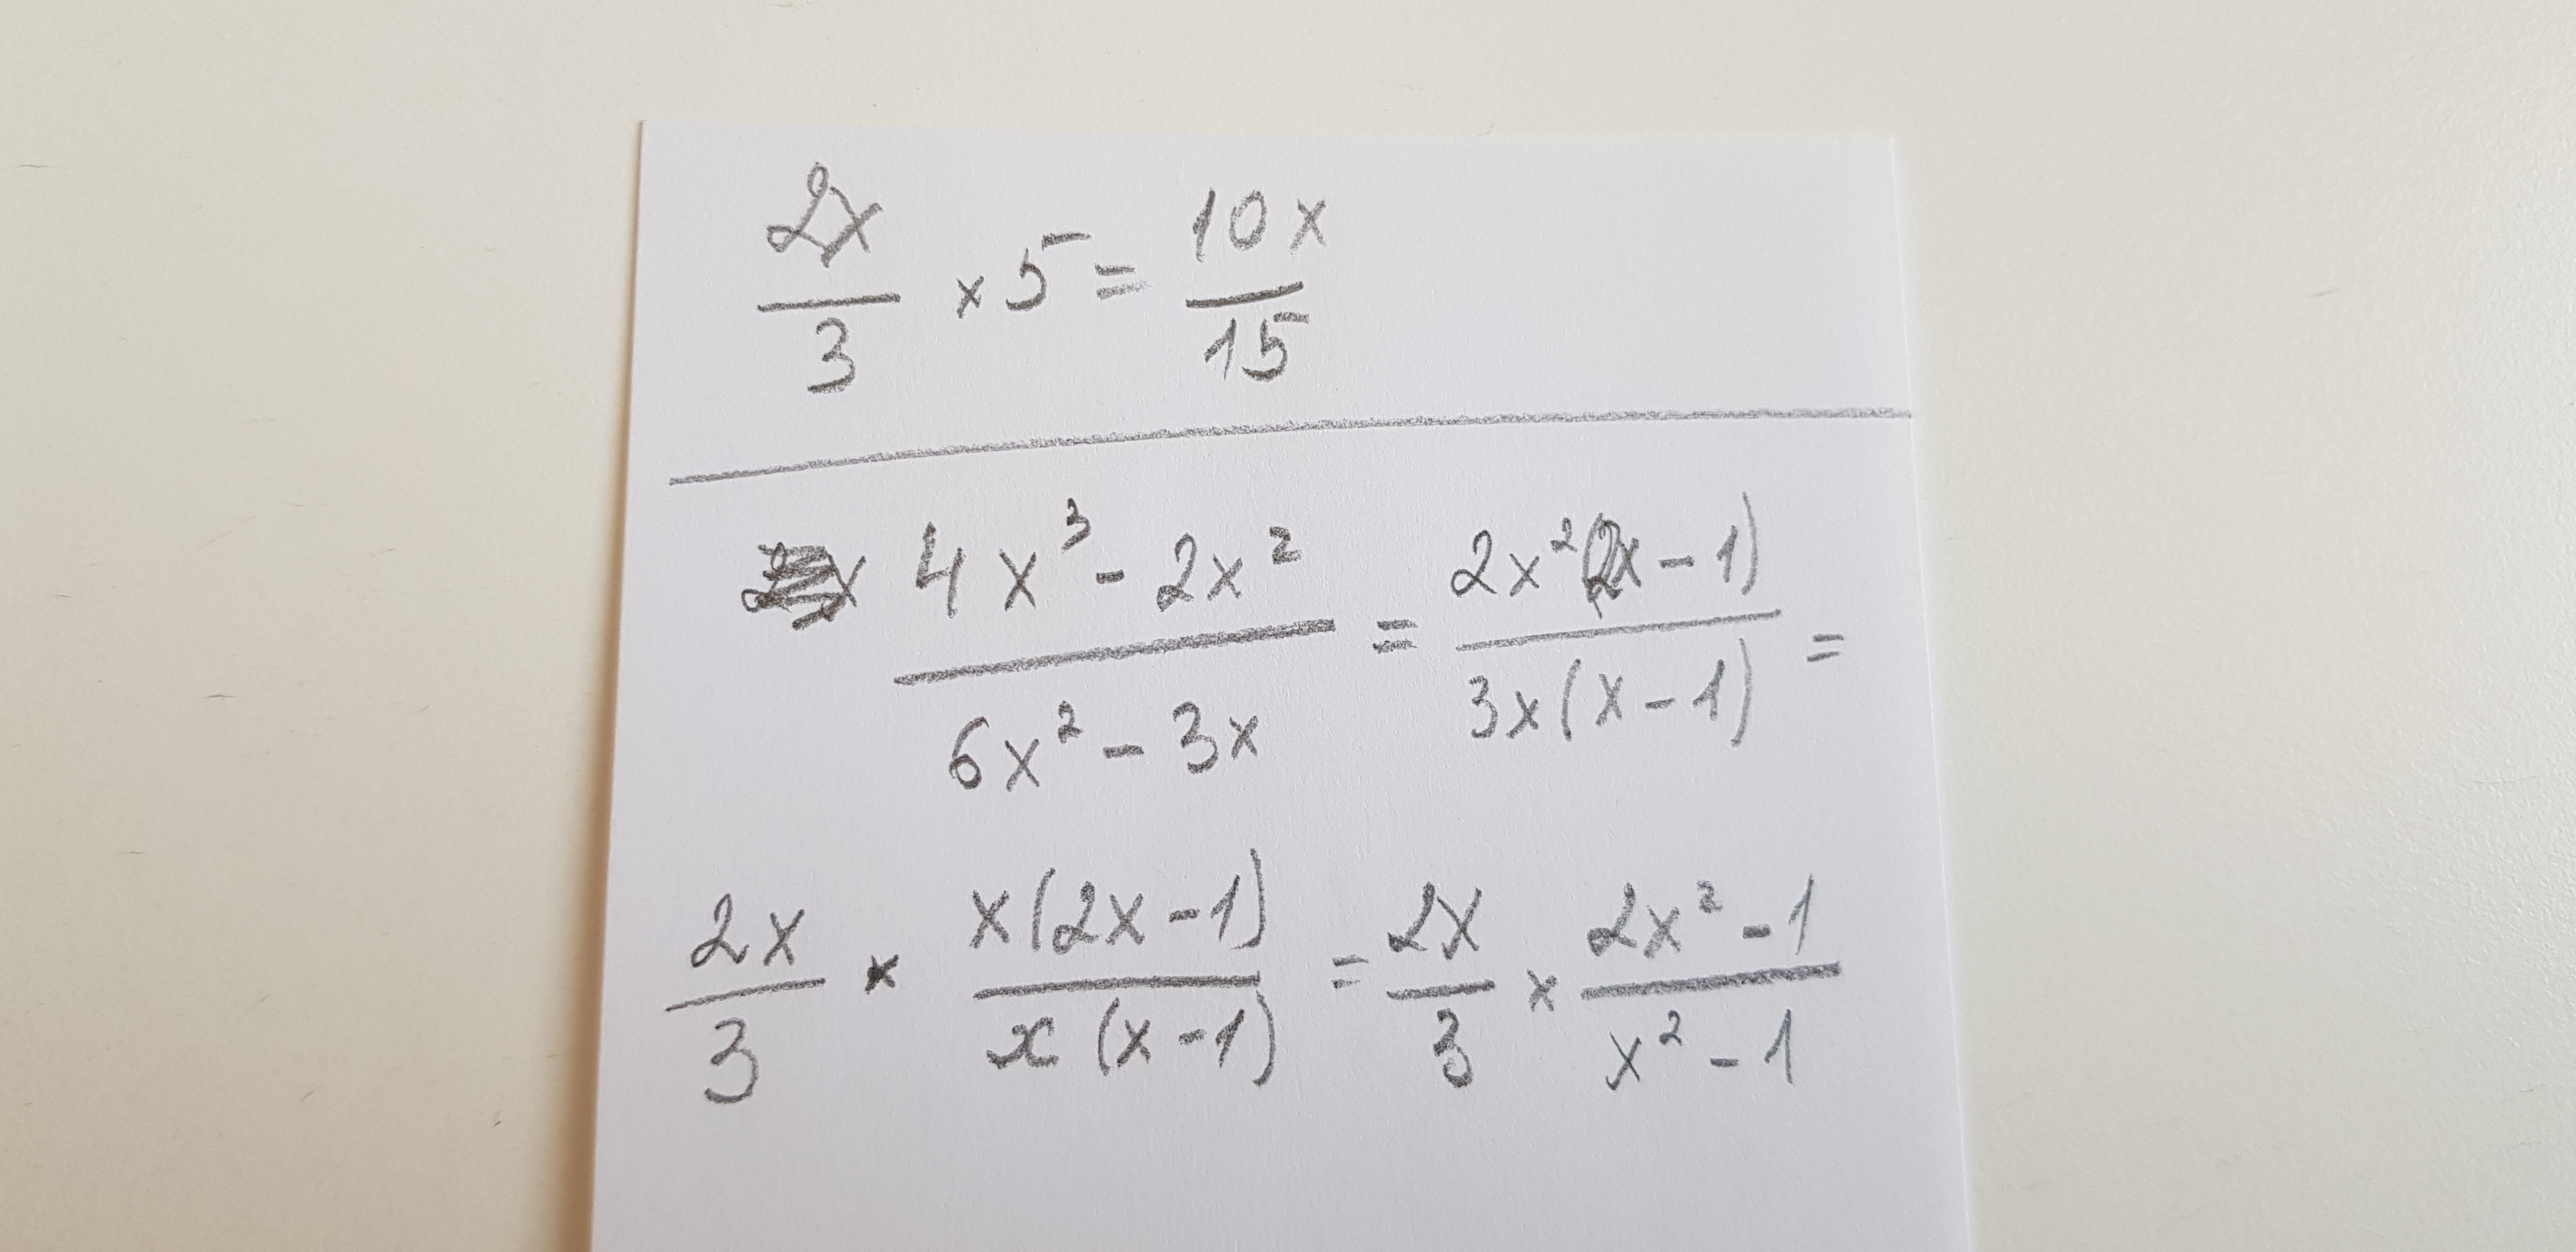 2x/3 × 5 = 10x/15
4x³ - 2x² / 6x² - 3x = 2x²(2x - 1) / 3x(x - 1) =
2x/3 × x(2x - 1) / x(x - 1) = 2x/3 × 2x² - 1 / x² - 1